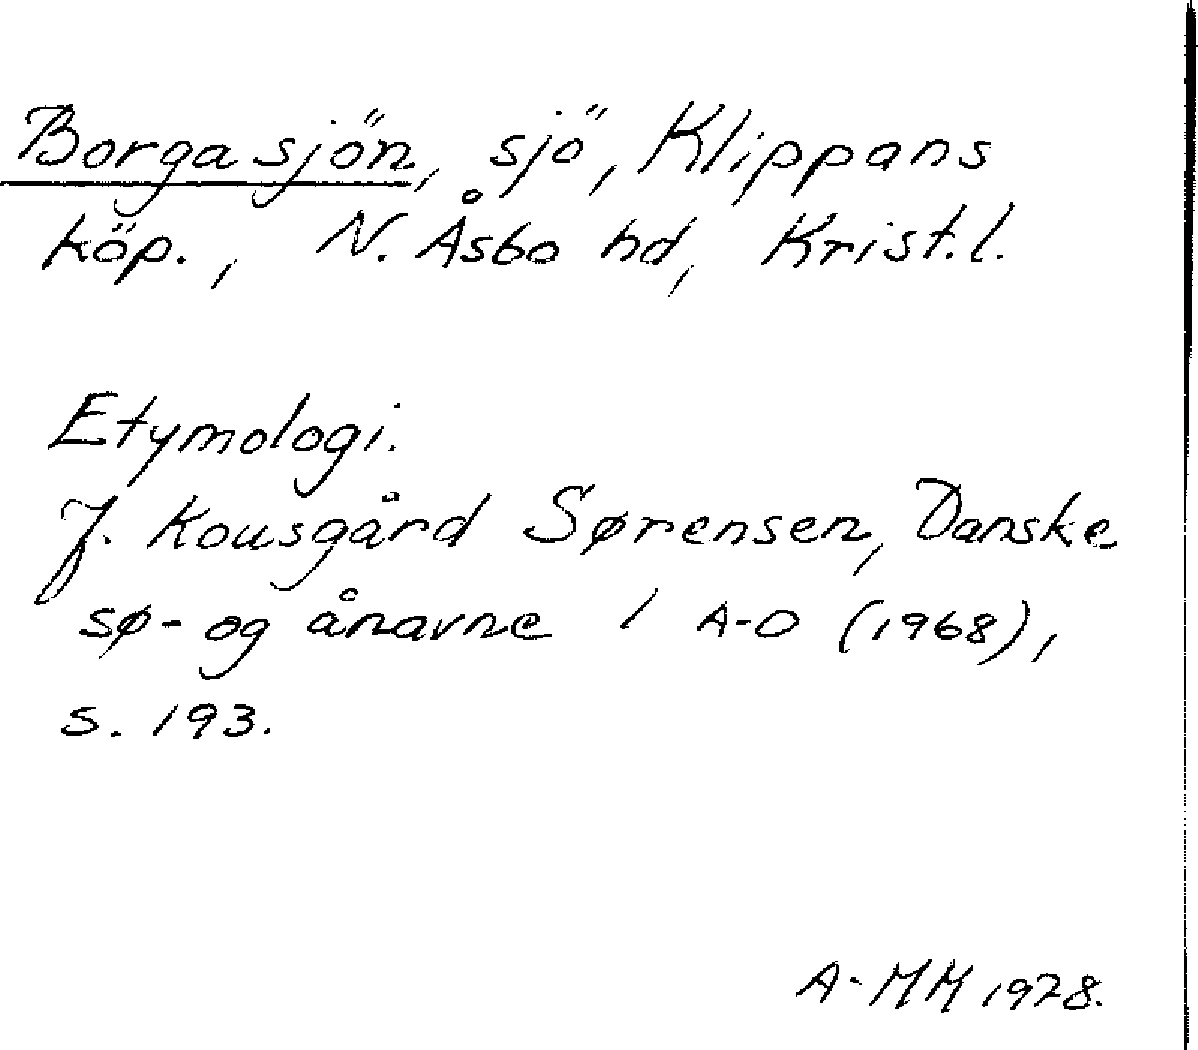 Borgasjön, sjö, Klippans
köp., N. Åsbo hd, Krist.l.
Etymologi.
J. Kousgård Sørensen, Danske
sø- og ånavne 1 A-O (1968),
s. 193.
A-MM 1978.